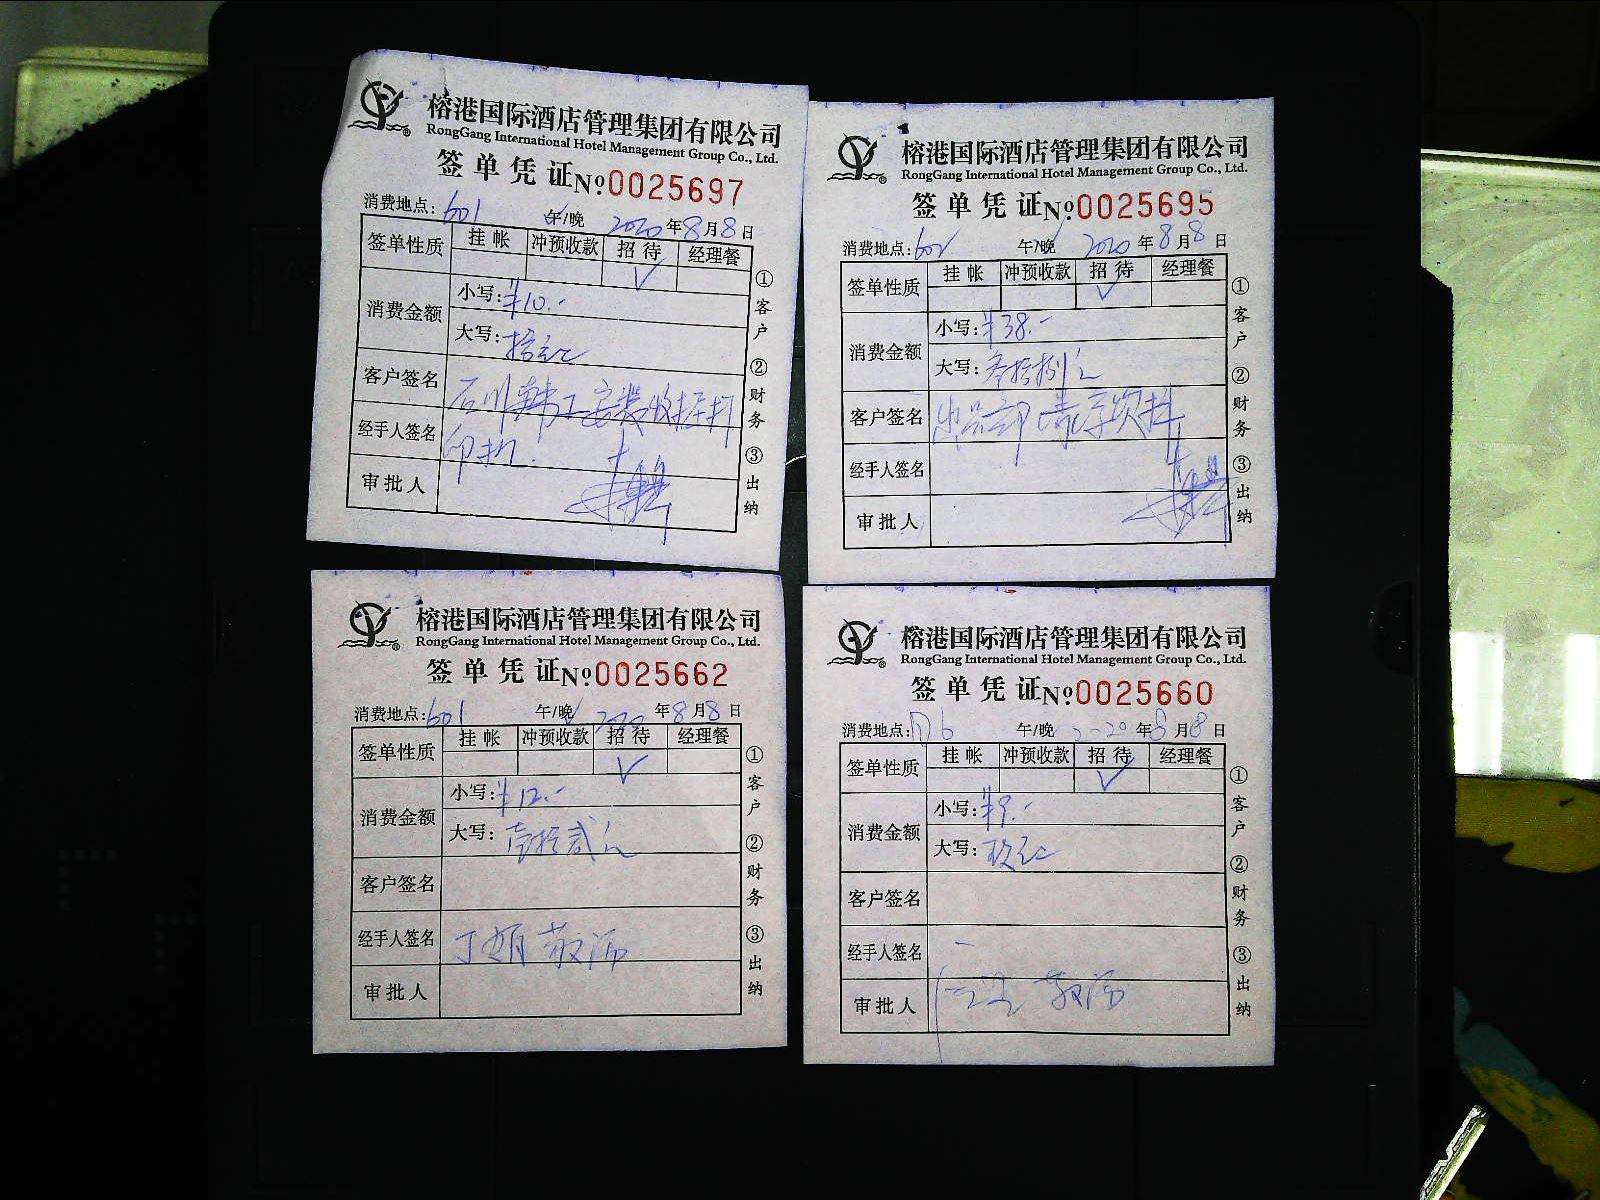 榕港国际酒店管理集团有限公司
RongGang International Hotel Management Group Co., Ltd.
签单凭证 No 0025697
消费地点: 601 午/晚 2020 年 8 月 8 日
签单性质 挂帐 冲预收款 招待 经理餐
✓
消费金额 小写: ¥10.-
大写: 拾元
客户签名
经手人签名 印机.
审批人
①客户 ②财务 ③出纳
榕港国际酒店管理集团有限公司
RongGang International Hotel Management Group Co., Ltd.
签单凭证 No 0025695
消费地点: 602 午/晚 2020 年 8 月 8 日
签单性质 挂帐 冲预收款 招待 经理餐
✓
消费金额 小写: ¥38.-
大写: 叁拾捌元
客户签名 出品部
经手人签名
审批人
①客户 ②财务 ③出纳
榕港国际酒店管理集团有限公司
RongGang International Hotel Management Group Co., Ltd.
签单凭证 No 0025662
消费地点: 601 午/晚 2020 年 8 月 8 日
签单性质 挂帐 冲预收款 招待 经理餐
✓
消费金额 小写: ¥12.-
大写: 壹拾贰元
客户签名
经手人签名 丁娟 敬汤
审批人
①客户 ②财务 ③出纳
榕港国际酒店管理集团有限公司
RongGang International Hotel Management Group Co., Ltd.
签单凭证 No 0025660
消费地点: 午/晚 2020 年 8 月 8 日
签单性质 挂帐 冲预收款 招待 经理餐
✓
消费金额 小写: ¥9.-
大写: 玖元
客户签名
经手人签名
审批人 敬汤
①客户 ②财务 ③出纳